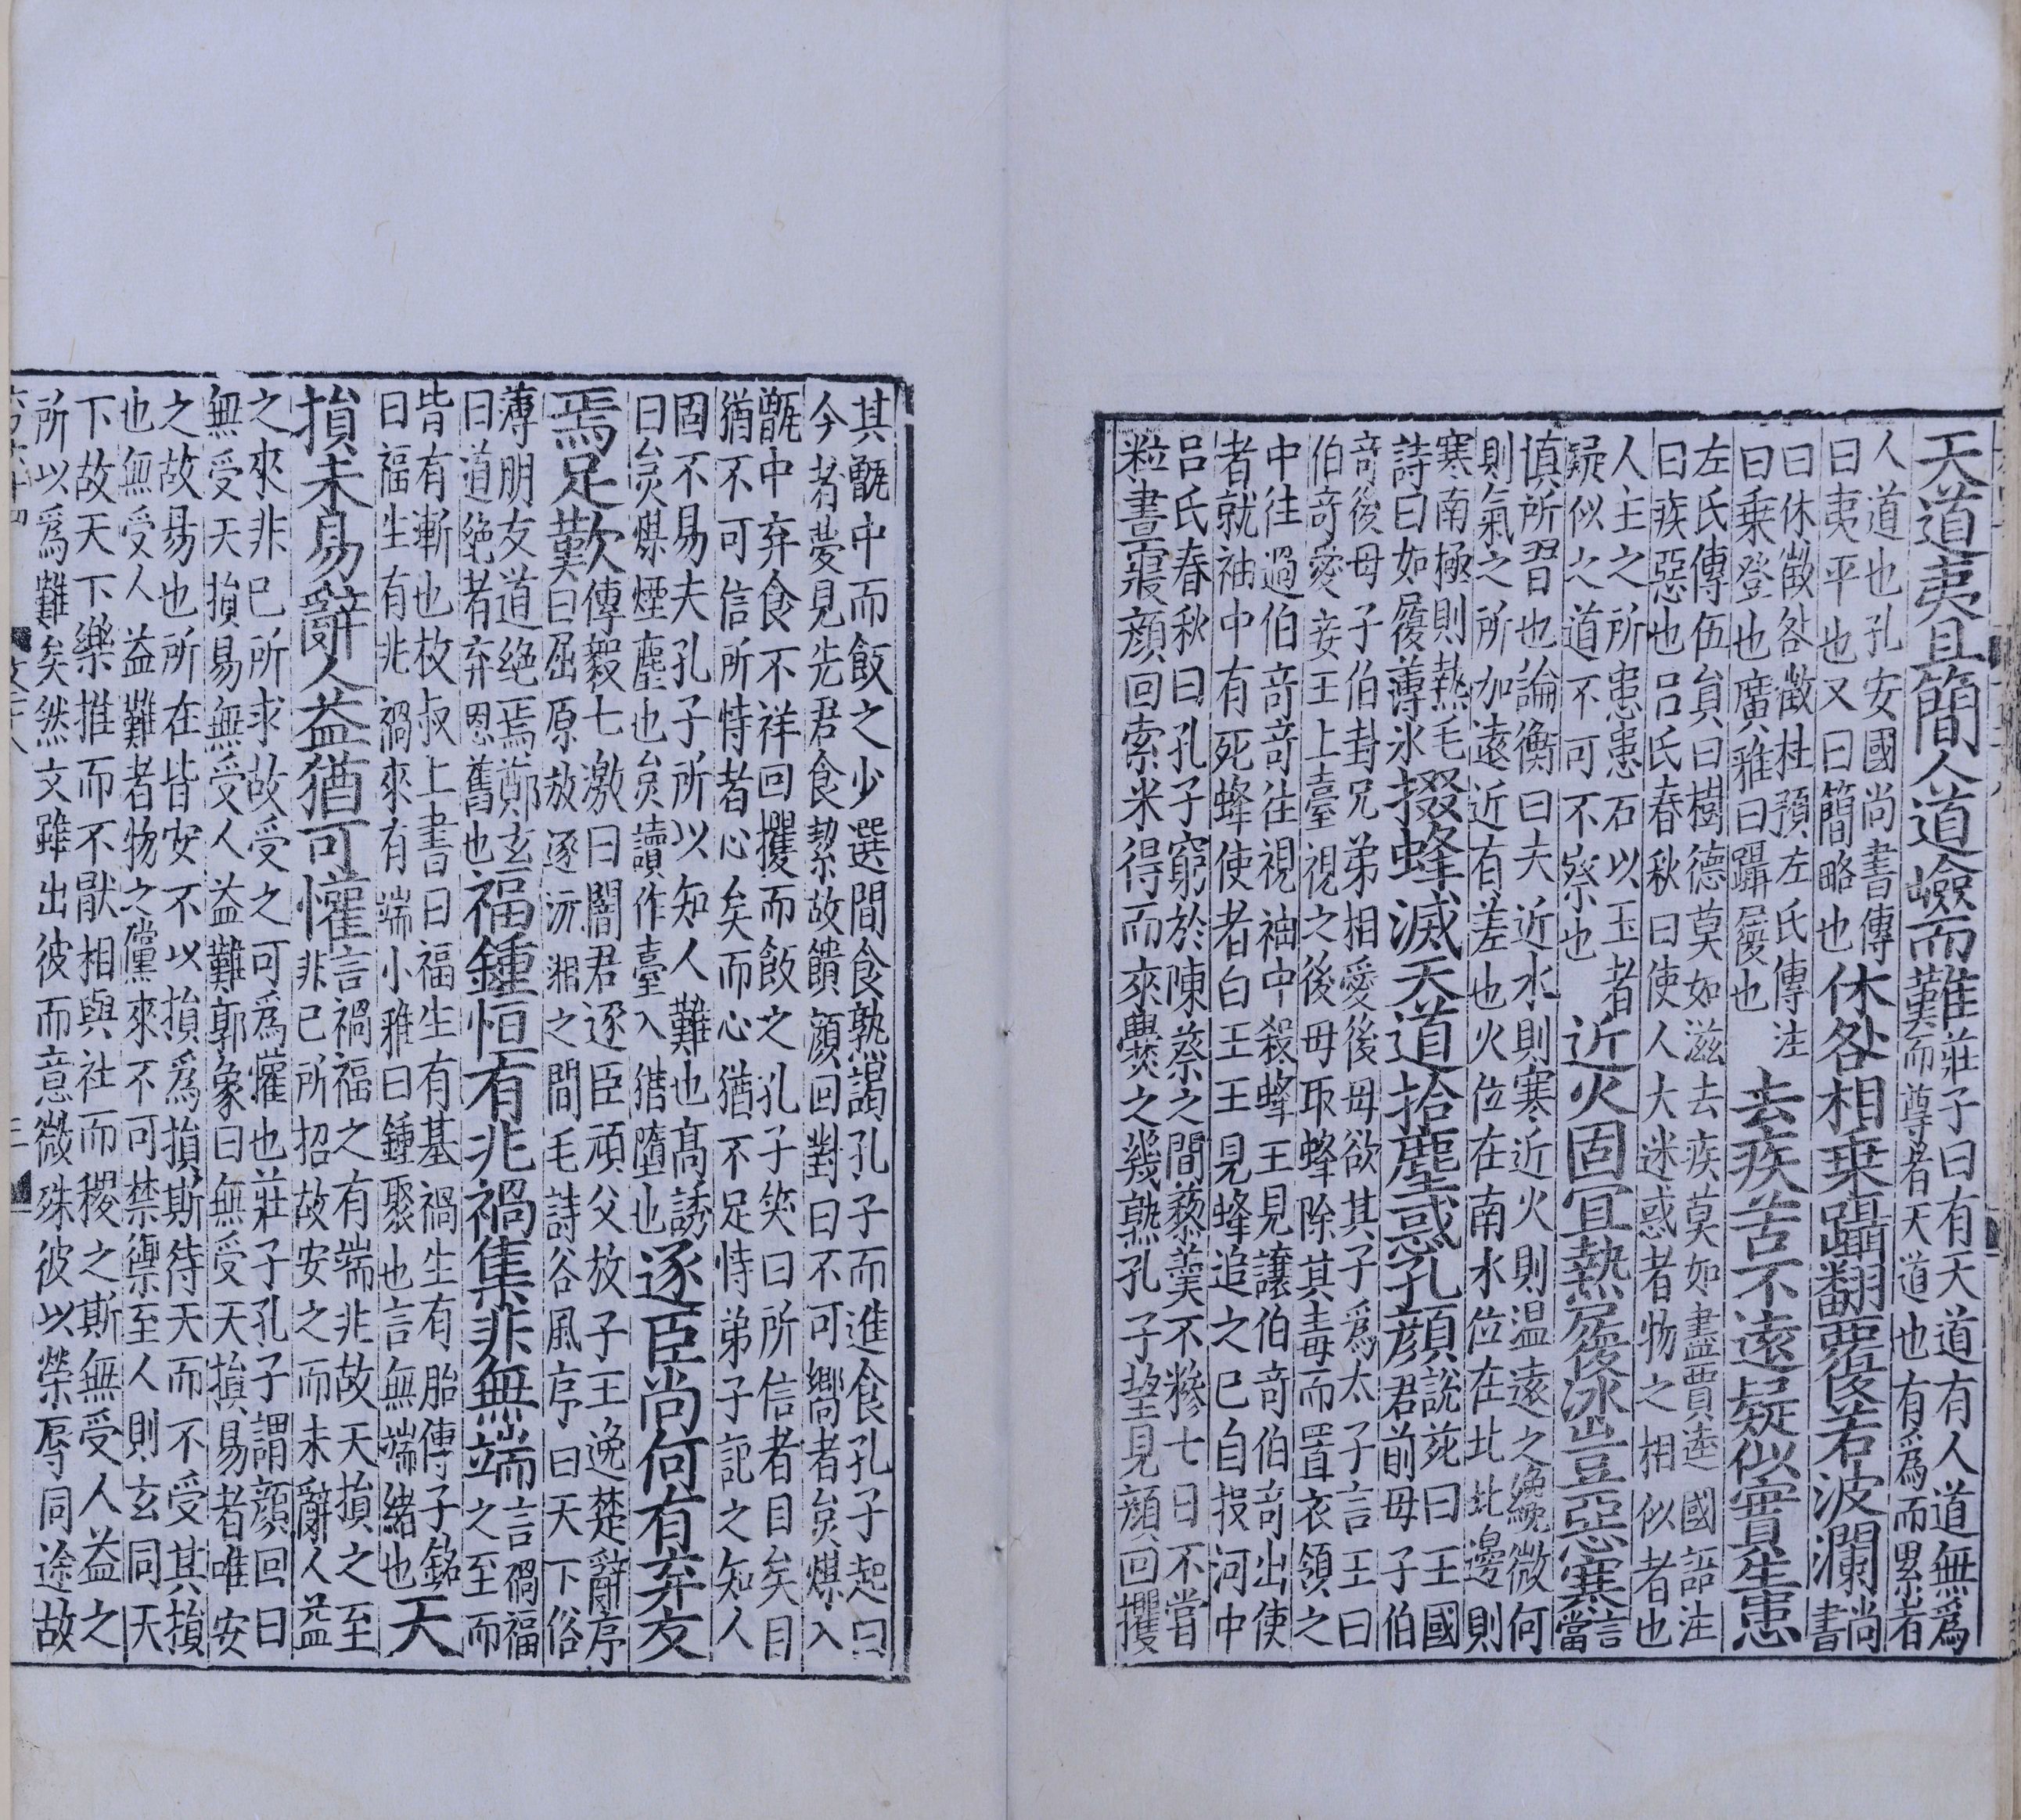 天道夷且簡人道嶮而難莊子曰有天道有人道無爲
而尊者天道也有爲而累者
人道也孔安國尚書傳
曰夷平也又曰簡略也休咎相乗躡翻覆若波瀾尚
書
曰休徵咎徵杜預左氏傳注
曰乗登也廣雅曰躡履也去疾苦不遠疑似實生患
左氏傳伍員曰樹德莫如滋去疾莫如盡賈逵國語注
曰疾惡也吕氏春秋曰使人大迷惑者物之相似者也
人主之所患患石以玉者
疑似之道不可不察也近火固宜熱履冰豈惡寒言
當
慎所習也論衡曰夫近水則寒近火則温遠之纔微何
則氣之所加遠近有差也火位在南水位在北北邊則
寒南極則熱毛
詩曰如履薄冰掇蜂滅天道拾塵惑孔顔說苑曰王國
君前母子伯
竒後母子伯封兄弟相愛後母欲其子爲太子言王曰
伯竒愛妾王上臺視之後母取蜂除其毒而置衣領之
中往過伯竒竒往視袖中殺蜂王見讓伯竒伯竒出使
者就袖中有死蜂使者白王王見蜂追之已自投河中
吕氏春秋曰孔子窮於陳蔡之間藜羹不糝七日不嘗
粒晝寢顔回索米得而來爨之㡬熟孔子望見顔回攫
其甑中而飯之少選間食熟謁孔子而進食孔子起曰
今者夢見先君食絜故饋顔回對曰不可嚮者炱煤入
甑中弃食不祥回攫而飯之孔子笑曰所信者目矣目
猶不可信所恃者心矣而心猶不足恃弟子記之知人
固不易夫孔子所以知人難也高誘
曰炱煤煙塵也炱讀作臺入猶墮也逐臣尚何有弃友
焉足歎傅毅七激曰闇君逐臣頑父放子王逸楚辭序
曰屈原放逐沅湘之間毛詩谷風序曰天下俗
薄朋友道絶焉鄭玄
曰道絶者弃恩舊也福鍾恒有兆禍集非無端言禍福
之至而
皆有漸也枚叔上書曰福生有基禍生有胎傅子銘
曰福生有兆禍來有端小雅曰鍾聚也言無端緒也天
損未易辭人益猶可懽言禍福之有端兆故天損之至
非已所招故安之而未辭人益
之來非已所求故受之可爲懽也莊子孔子謂顔回曰
無受天損易無受人益難郭象曰無受天損易者唯安
之故易也所在皆安不以損爲損斯待天而不受其損
也無受人益難者物之儻來不可禁禦至人則玄同天
下故天下樂推而不猒相與社而稷之斯無受人益之
所以爲難矣然文雖出彼而意微殊彼以榮辱同途故